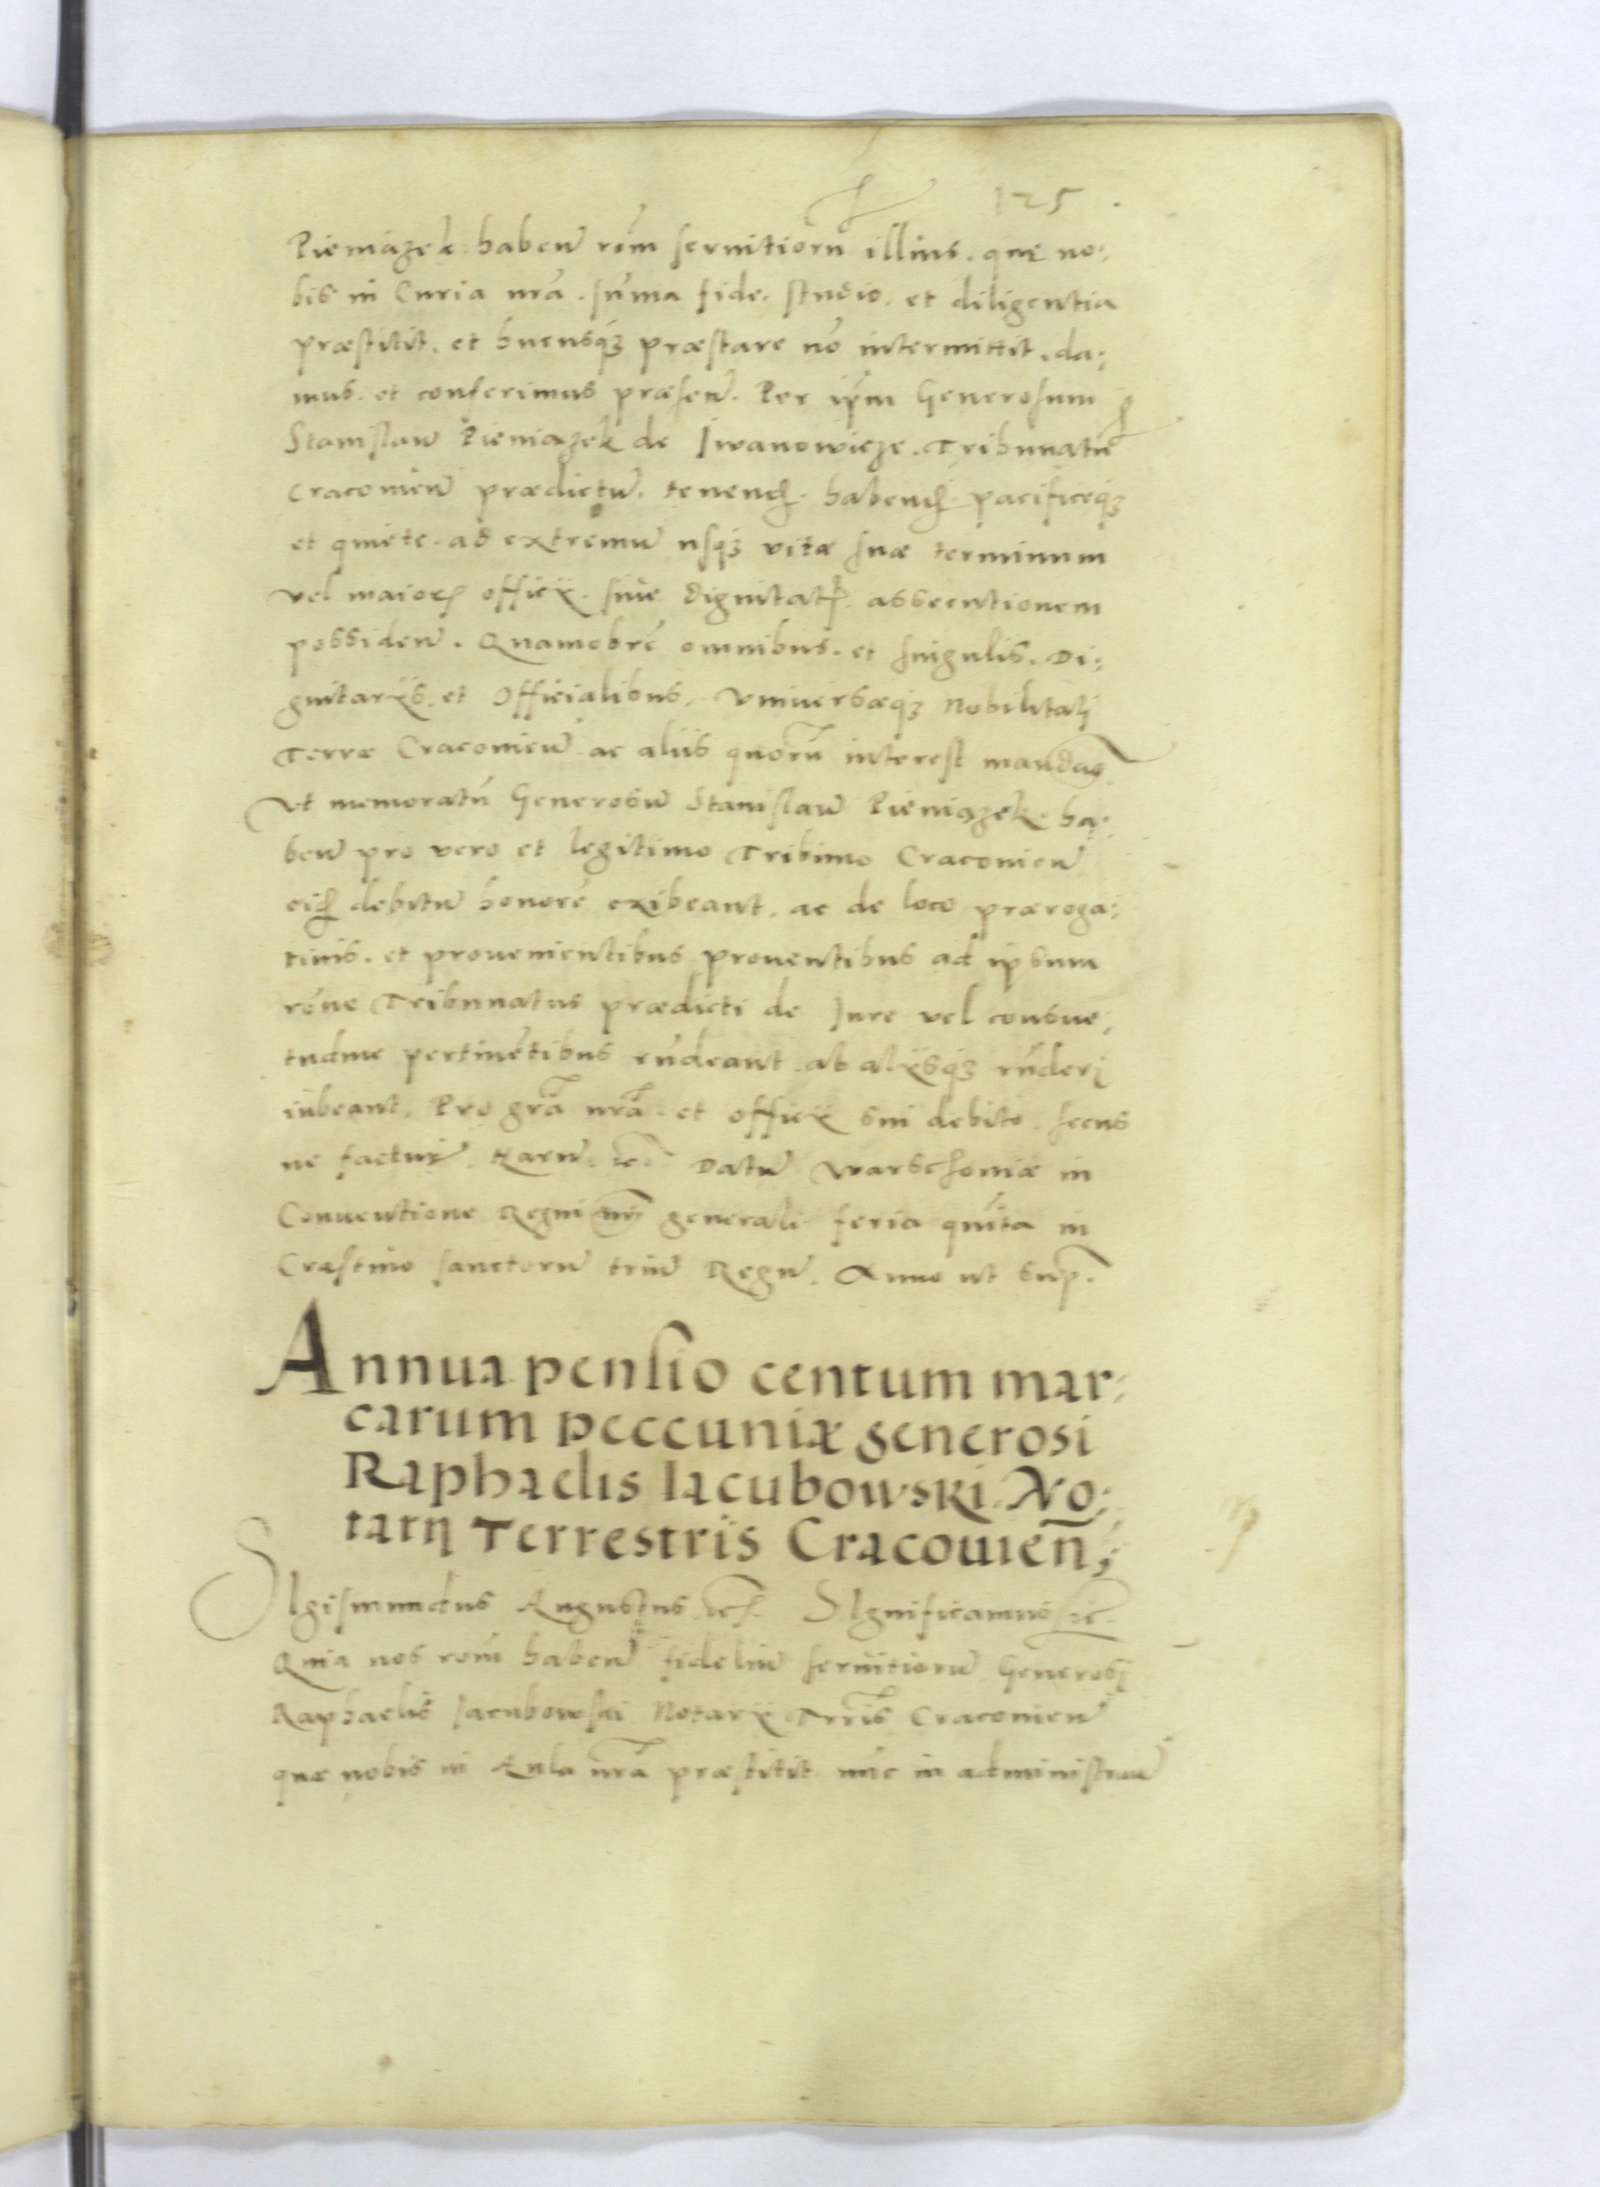 125
Pieniązek. haben̄ rōm seruitiorū illius. quę no:
bis in Curia nrā. sūma fide. studio. et diligentia
præstitit. et hucusq3 præstare nō intermittit. da:
mus. et conferimus præsen̄. Per ipm̄ Generosum
Stanislaū Pieniązek de Iwanowicze. Tribunatū
Cracouieñ prædictū. tenend. habend. pacificeq3
et quiete. ad extremū usq3 vitæ suæ terminum
vel maior officij. siue dignitat. assecutionem
possiden̄. Quamobrē omnibus. et singulis. Di:
gnitarijs. et Officialibus. Vniuersæq3 Nobilitati
Terræ Cracouieñ. ac aliis quorū interest mandam9
Vt memoratū Generosū Stanislaū Pieniązek. ha:
beñ pro vero et legitimo Tribuno Cracouieñ
eiq debitū honorē exibeant. ac de loco præroga:
tiuis. et prouenientibus prouentibus ad ipsum
rōne Tribunatus prædicti de Iure vel consue:
tudine pertinētibus rn̄deant. ab alijsq3 rn̄deri
iubeant. Pro grā nrā. et officij sui debito. secus
ne factur̄. Harū. ec̄. Datū Warschouiæ in
Conuentione Regni nr̄i generali feria quīta in
Crastino sanctorū triū Regū. Anno ut sup.
Annua pensio centum mar:
carum peccuniæ generosi
Raphaelis Iacubowski. No:
tarij Terrestris Cracouień;
SIgismundus Augustus ec̄. SIgnificamus ec̄.
Quia nos rōm haben̄ fideliū seruitiorū Generosi
Raphaelis Iacubowski Notarij Trris Cracouieñ
quæ nobis in Aula nrā præstitit nūc in administran̄